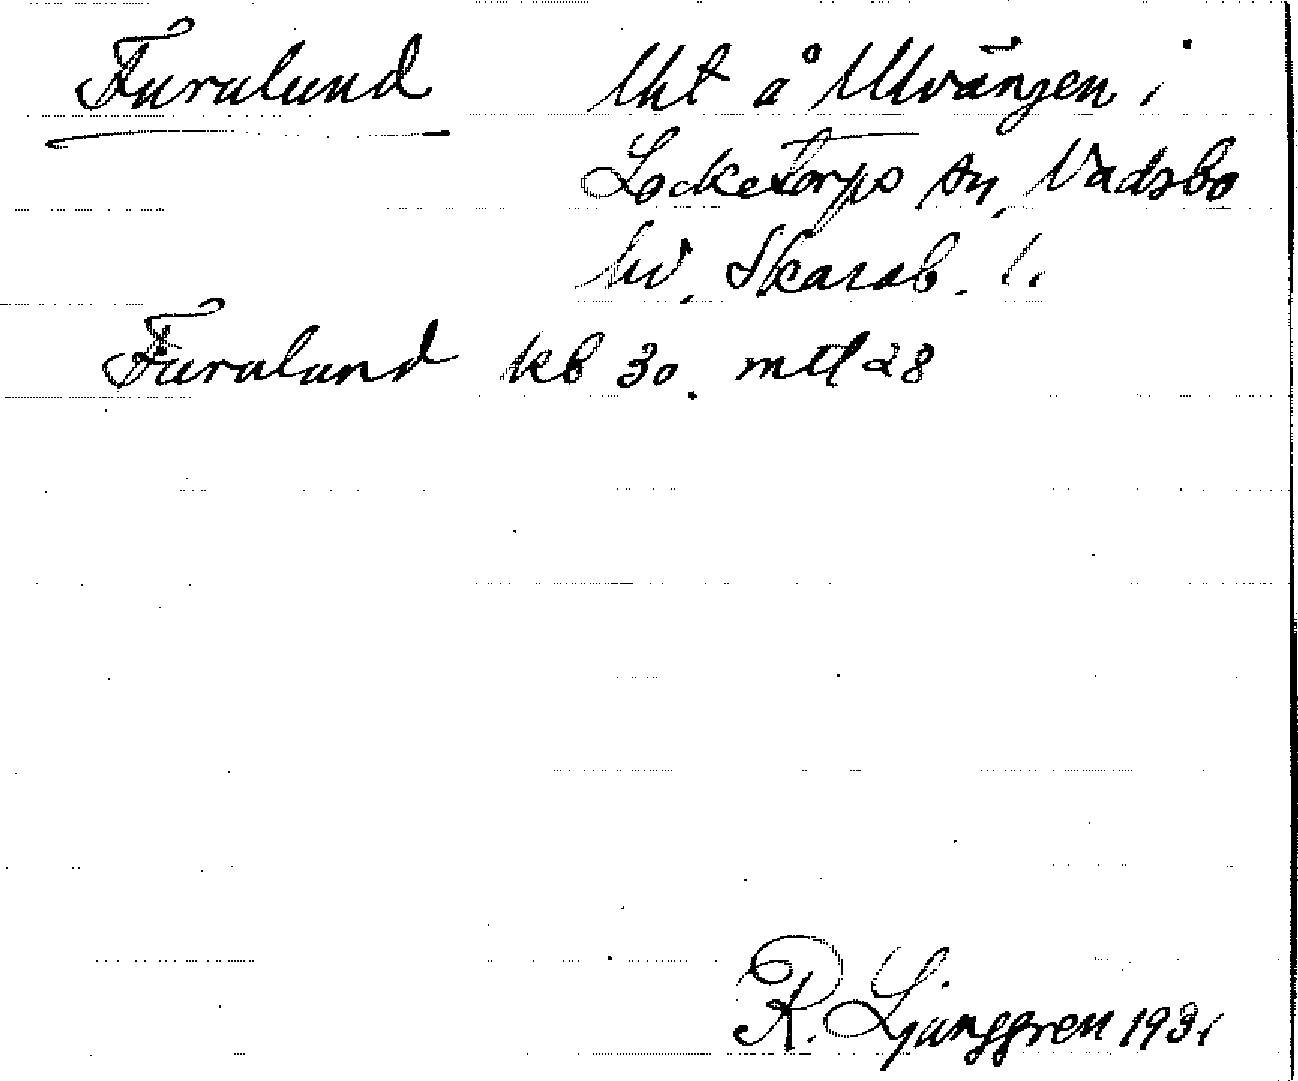 Furulund Uht å Utvängen i
Locketorps sn, Vadsbo
hd, Skarab. l.
Furulund kb 30. mtl 28
R. Ljunggren 1931